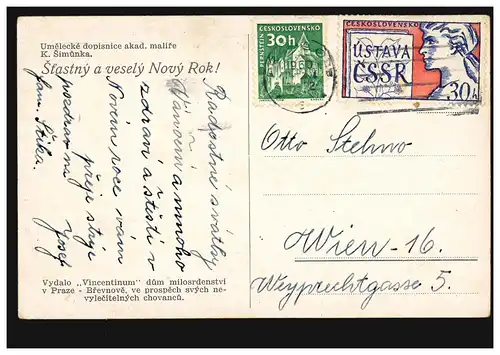 Umělecké dopisnice akad. malíře
K. Šimůnka.
Šťastný a veselý Nový Rok!
Radostné svátky
Vánoční a mnoho
zdraví a štěstí v
Novém roce vám
přeje strýc
Josef
pozdrav na
fam. Štika.
Vydalo „Vincentinum" dům milosrdenství
v Praze - Břevnově, ve prospěch svých ne-
vyléčitelných chovanců.
ČESKOSLOVENSKO
30h
PERNŠTEJN
ČESKOSLOVENSKO
ÚSTAVA
ČSSR
30h
Otto Stehno
Wien-16.
Weyprechtgasse 5.